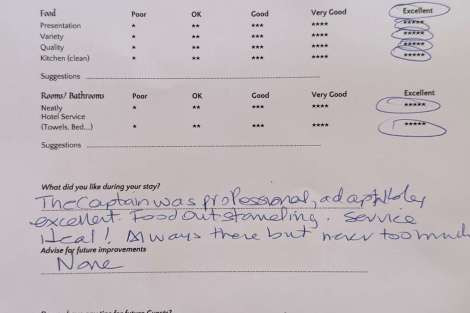 Food Poor OK Good Very Good Excellent
Presentation * ** *** **** *****
Variety * ** *** **** *****
Quality * ** *** **** *****
Kitchen (clean) * ** *** **** *****
Suggestions
Rooms/ Bathrooms Poor OK Good Very Good Excellent
Neatly * ** *** **** *****
Hotel Service
(Towels, Bed...) * ** *** **** *****
Suggestions
What did you like during your stay?
The Captain was professional, adaptable,
excellent. Food outstanding. Service
Ideal! Always there but never too much
Advise for future improvements
None